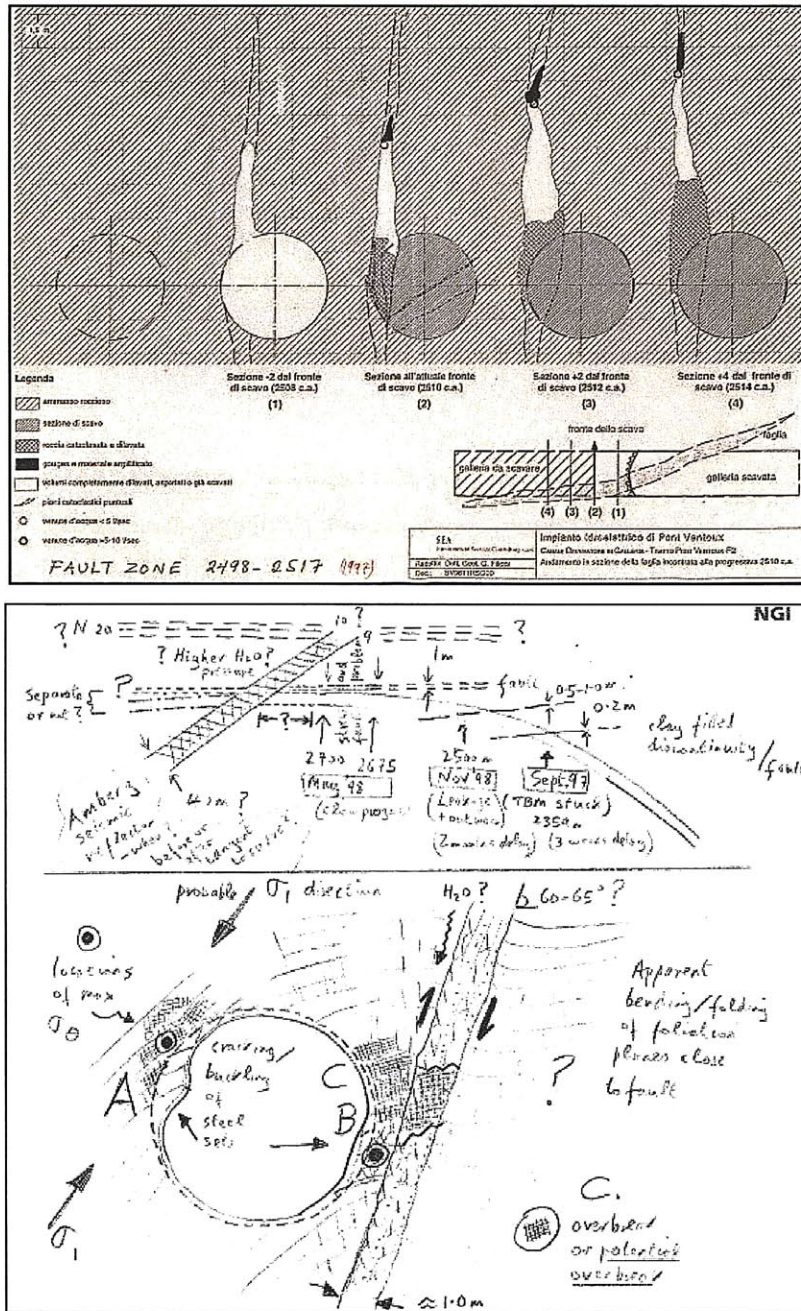 1,5 m
Legenda
ammasso roccioso
sezione di scavo
roccia cataclasata e dilavata
gouges e materiale argillificato
volumi completamente dilavati, asportati o già scavati
piani cataclastici puntuali
venute d'acqua < 5 l/sec
venute d'acqua =5-10 l/sec
Sezione -2 dal fronte
di scavo (2508 c.a.)
(1)
Sezione all'attuale fronte
di scavo (2510 c.a.)
(2)
Sezione +2 dal fronte
di scavo (2512 c.a.)
(3)
Sezione +4 dal fronte di
scavo (2514 c.a.)
(4)
fronte dello scavo
faglia
galleria da scavare
galleria scavata
(4) (3) (2) (1)
SEA
Impianto Idroelettrico di Pont Ventoux
Andamento in sezione della faglia incontrata alla progressiva 2510 c.a.
FAULT ZONE 2498-2517 (1997)
NGI
? N 20
10 ?
9
?
? Higher H2O?
pressure
problem
1m
Separate
or not ?
?
fault
0.5-1.0m
0.2m
clay filled
discontinuity/
fault
?
2700
2675
May 98
2500m
Nov' 98
(Leakage
(2 months delay)
Sept. 97
(TBM stuck)
2350m
(3 weeks delay)
Amberg
seismic
reflector
probable σ1 direction
H2O ?
60-65° ?
locations
of max
σθ
cracking/
buckling
of
steel
sets
A
B
C
σ1
Apparent
bending/folding
of foliation
planes close
to fault
?
C.
overbreak
or potential
overbreak
≈ 1.0 m